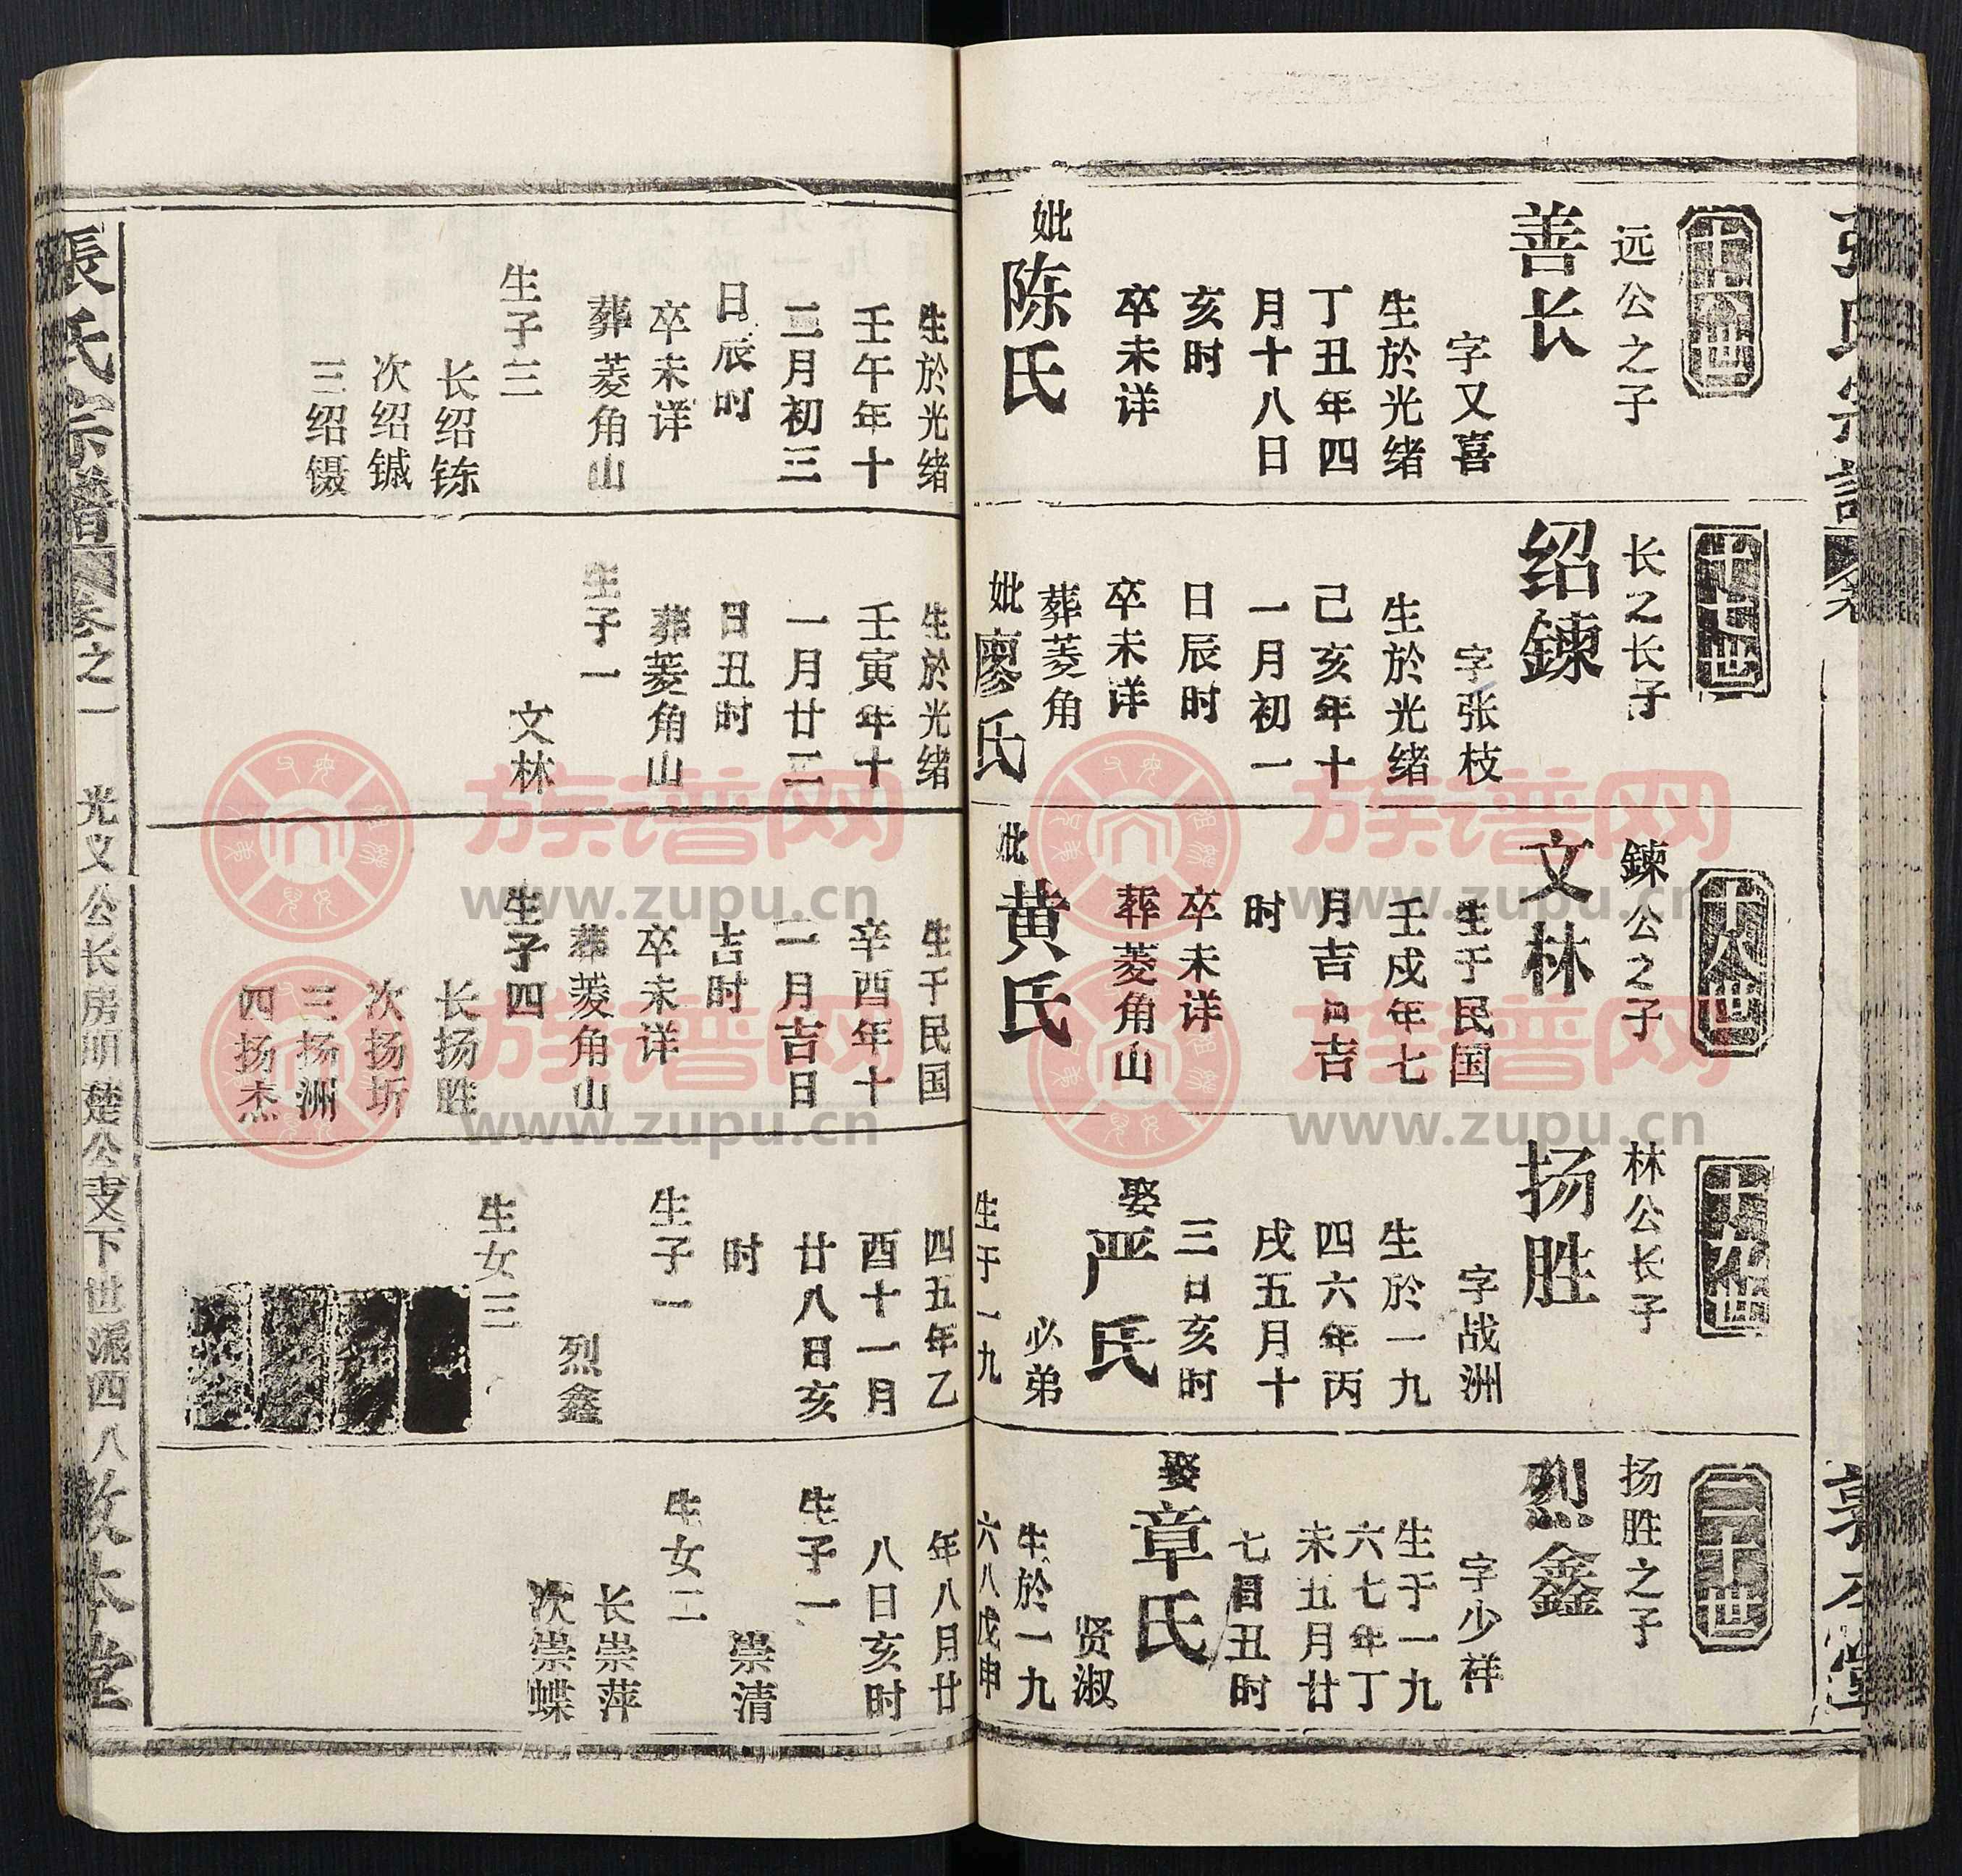 张氏宗谱
十六世
远公之子
善长
字又喜
生於光绪
丁丑年四
月十八日
亥时
卒未详
妣
陈氏
生於光绪
壬午年十
二月初三
日辰时
卒未详
葬菱角山
生子三
长绍𬭎
次绍铖
三绍镊
十七世
长之长子
绍鍊
字张枝
生於光绪
己亥年十
一月初一
日辰时
卒未详
葬菱角
妣
廖氏
生於光绪
壬寅年十
一月廿二
日丑时
葬菱角山
生子一
文林
十八世
鍊公之子
文林
生于民国
壬戍年七
月吉日吉
时
卒未详
葬菱角山
妣
黄氏
生于民国
辛酉年十
一月吉日
吉时
卒未详
葬菱角山
生子四
长扬胜
次扬圻
三扬洲
四扬杰
十九世
林公长子
扬胜
字战洲
生於一九
四六年丙
戌五月十
三日亥时
娶
严氏
必弟
生于一九
四五年乙
酉十一月
廿八日亥
时
生子一
烈鑫
生女三
二十世
扬胜之子
烈鑫
字少祥
生于一九
六七年丁
未五月廿
七日丑时
娶
章氏
贤淑
生於一九
六八戊申
年八月廿
八日亥时
生子一
崇清
生女二
长崇萍
次崇蝶
張氏宗譜 卷之一 光义公长房明楚公支下世派四八 敦本堂
族谱网
www.zupu.cn
族谱网
www.zupu.cn
族谱网
www.zupu.cn
族谱网
www.zupu.cn